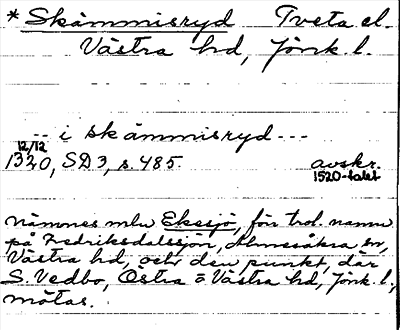 *Skämmisryd Tveta el.
Västra hd, Jönk. l.
-- i skämmisryd ---
12/12
1320, SD 3, s. 485. avskr.
1520-talet
nämnes mlu Ekesjö, för trol. namn
på Fredriksdalssjön, Almesåkra sn,
Västra hd, och den punkt, där
S. Vedbo, Östra o Västra hd, Jönk. l.,
mötas.